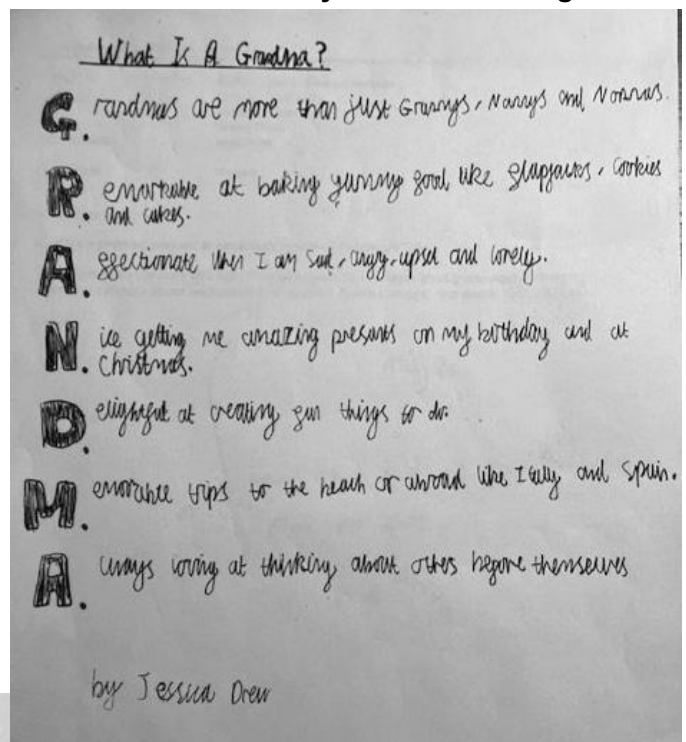 What Is A Grandma?
G. randmas are more than just Grannys, Nannys and Nonnas.
R. emarkable at baking yummy food like flapjacks, cookies
and cakes.
A. ffectionate when I am sad, angry, upset and lonely.
N. ice getting me amazing presants on my birthday and at
Christmas.
D. elightful at creating fun things to do.
M. emorable trips to the beach or abroad like Italy and Spain.
A. lways loving at thinking about others before themselves
by Jessica Drew